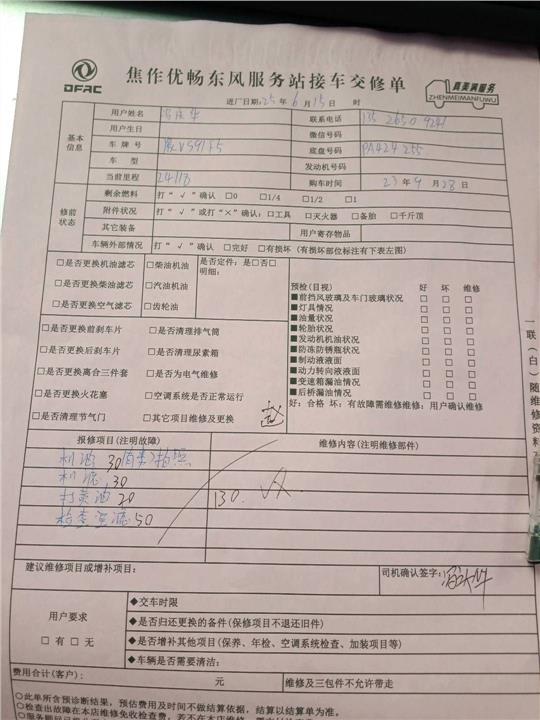 DFAC
焦作优畅东风服务站接车交修单
真美满服务
ZHENMEIMANFUWU
进厂日期: 25 年 6 月 15 日 时
基本信息
用户姓名
联系电话
用户生日
微信号码
车 牌 号
底盘号码 PA424255
车 型
发动机号码
当前里程 24118
购车时间 23 年 9 月 28 日
修前状态
剩余燃料 打“√”确认 □0 □1/4 □1/2 □1
附件状况 打“√”或打“×”确认:□工具 □灭火器 □备胎 □千斤顶
其它装备 用户寄存物品
车辆外部情况 打“√”确认 □完好 □有损坏(有损坏部位标注有下表左图)
□是否更换机油滤芯 □柴油机油 是否定件:是□否□
□是否更换柴油滤芯 □汽油机油 明细:
□是否更换空气滤芯 □齿轮油
□是否更换前刹车片 □是否清理排气筒
□是否更换后刹车片 □是否清理尿素箱
□是否更换离合三件套 □是否为电气维修
□是否更换火花塞 □空调系统是否正常运行
□是否清理节气门 □其它项目维修及更换
赵
预检(目视) 好 坏 维修
■前挡风玻璃及车门玻璃状况 □ □ □
■灯具情况 □ □ □
■油量状况 □ □ □
■轮胎状况 □ □ □
■发动机机油情况 □ □ □
■防冻防锈瓶状况 □ □ □
■制动液液面 □ □ □
■动力转向液液面 □ □ □
■变速箱漏油情况 □ □ □
■后桥漏油情况 □ □ □
好:合格 坏:有故障需维修维修:用户确认维修
报修项目(注明故障) 维修内容(注明维修部件)
机油 30
机滤 30
打黄油 20 130.
检查 50
建议维修项目或增补项目:
司机确认签字:
用户要求
□ 有 □ 无
◆交车时限
◆是否归还更换的备件(保修项目不退还旧件)
◆是否增补其他项目(保养、年检、空调系统检查、加装项目等)
◆车辆是否需要清洁:
费用合计(客户): 元 维修及三包件不允许带走
○此单所含预诊断结果,预估费用及时间不做结算依据,结算以结算单为准。
○检查出故障在本店维修免收检查费;若不在本店维修,
一(白)随维修资料